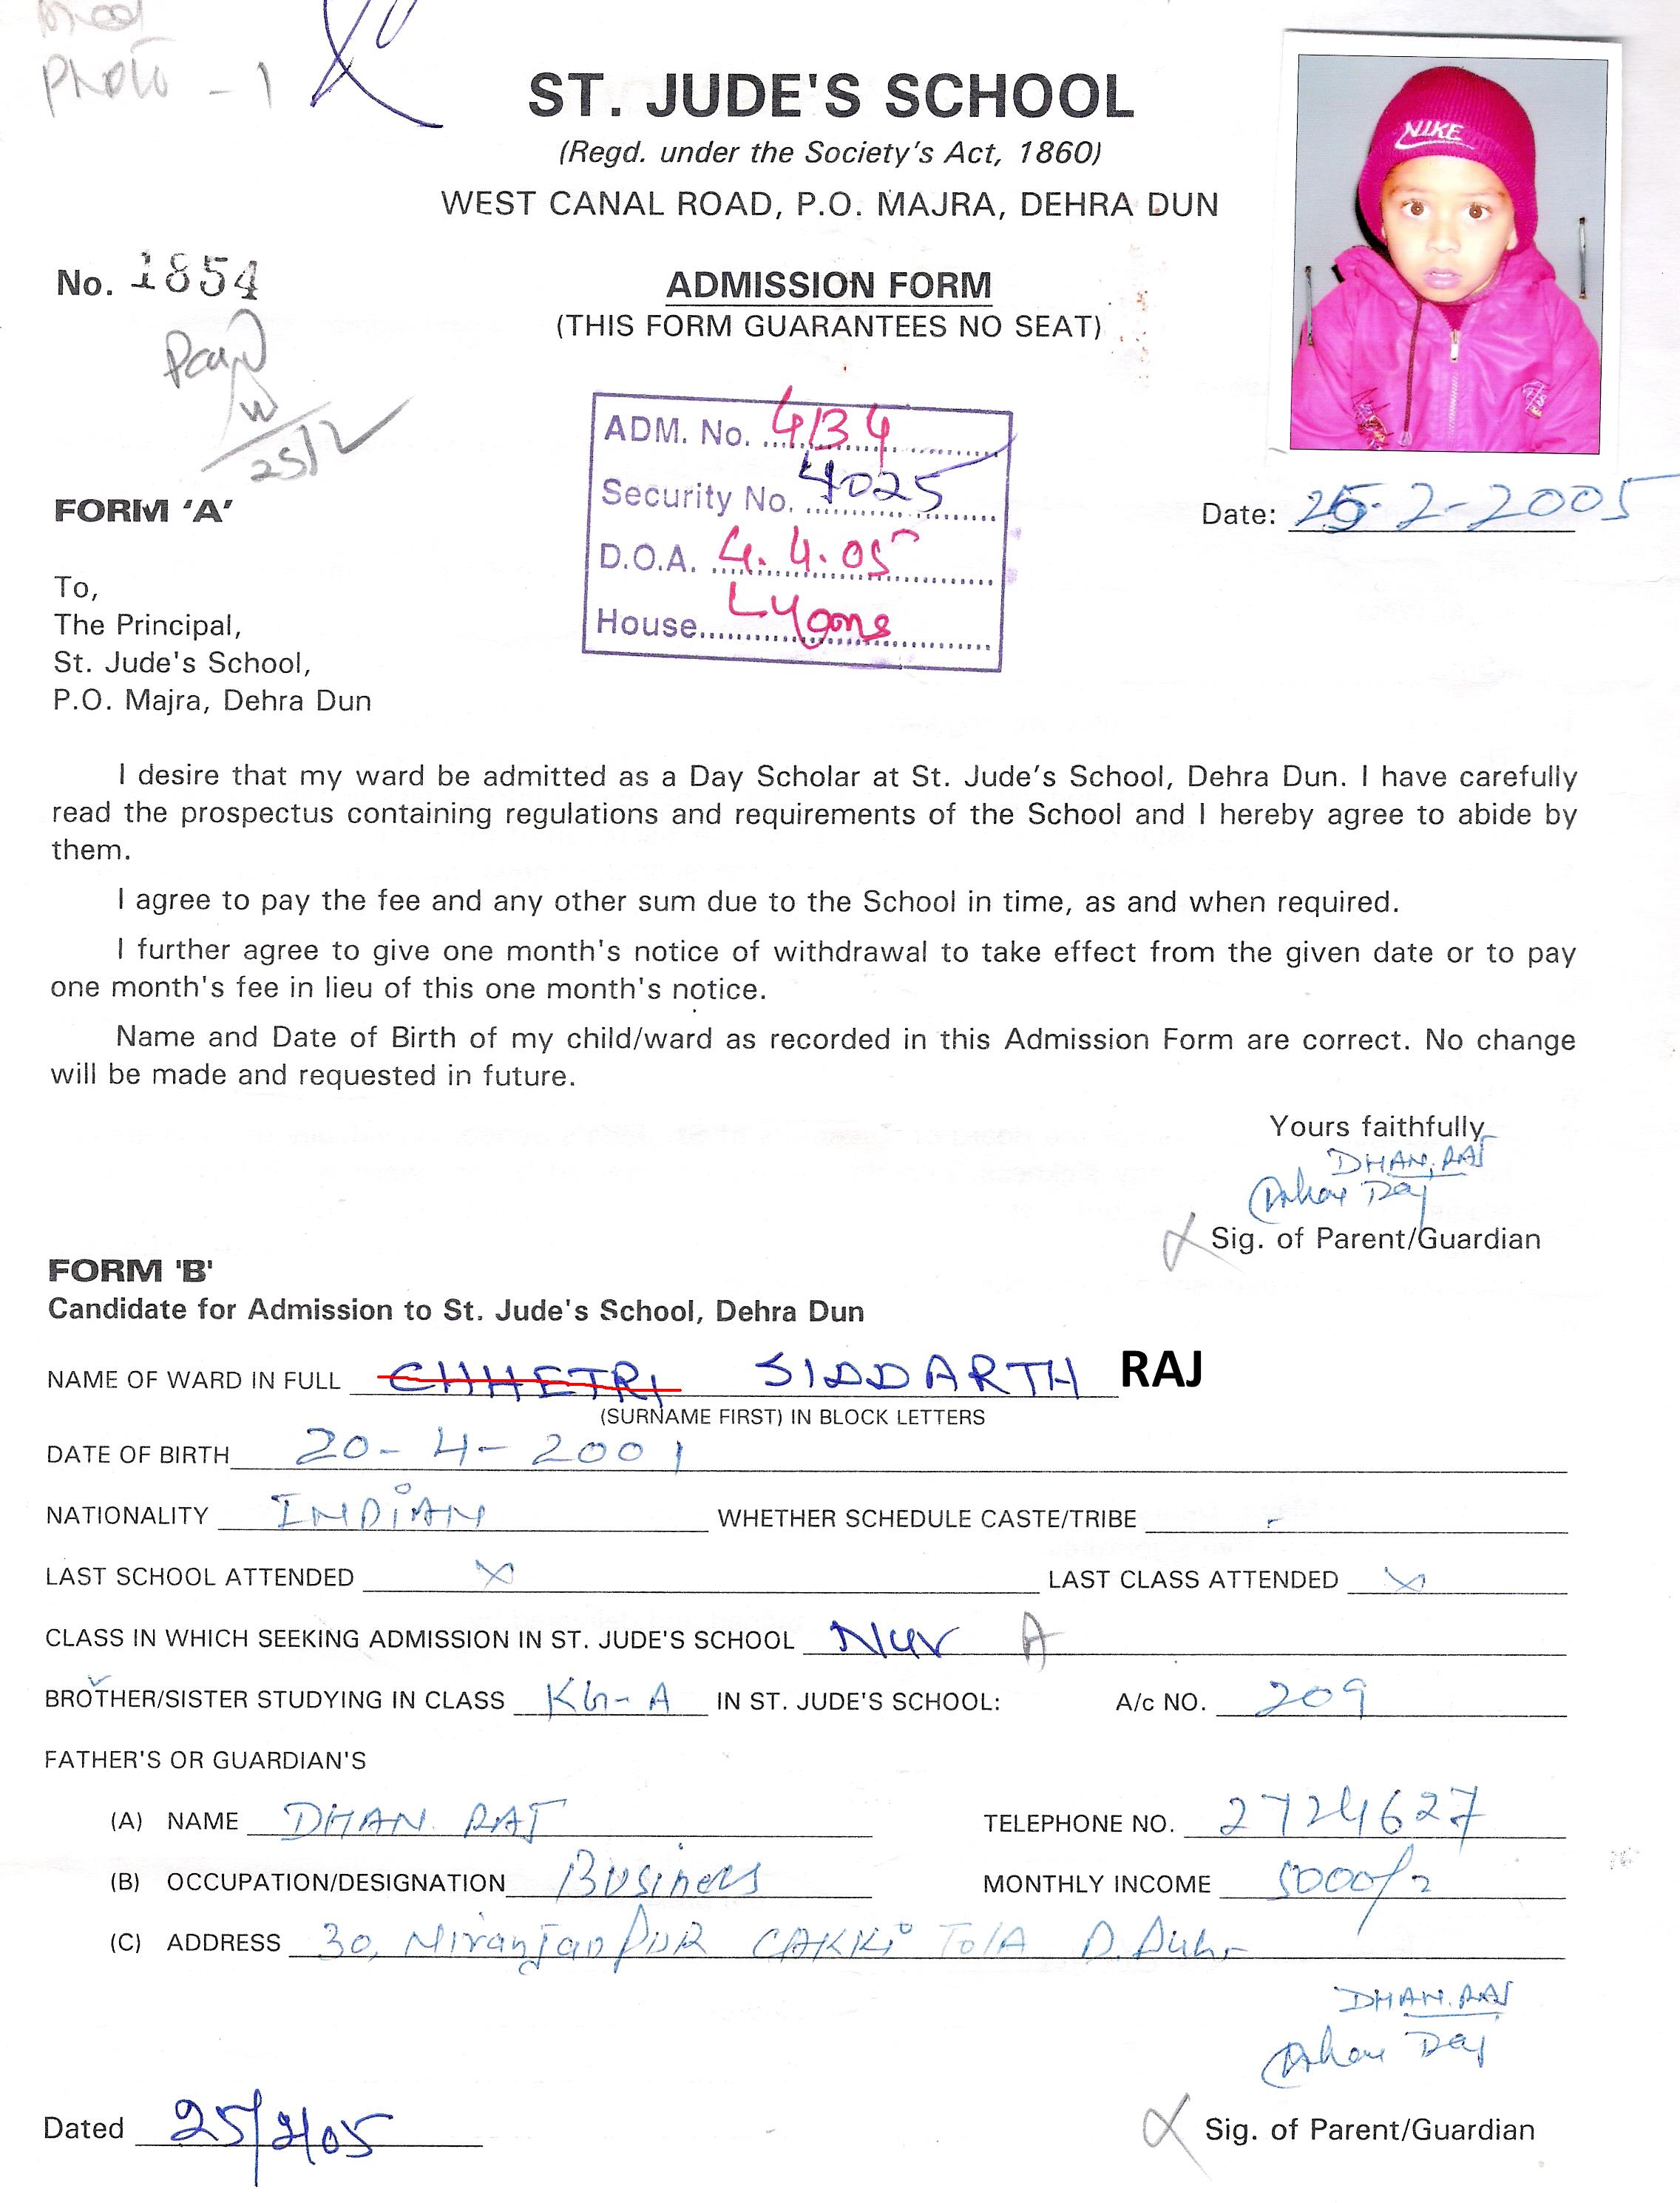 Photo - 1
ST. JUDE'S SCHOOL
(Regd. under the Society's Act, 1860)
WEST CANAL ROAD, P.O. MAJRA, DEHRA DUN
NIKE
No. 1854
ADMISSION FORM
(THIS FORM GUARANTEES NO SEAT)
25/2
ADM. No. 4134
Security No. 4025
D.O.A. 4.4.05
House Lyons
FORM 'A'
Date: 25-2-2005
To,
The Principal,
St. Jude's School,
P.O. Majra, Dehra Dun
I desire that my ward be admitted as a Day Scholar at St. Jude's School, Dehra Dun. I have carefully
read the prospectus containing regulations and requirements of the School and I hereby agree to abide by
them.
I agree to pay the fee and any other sum due to the School in time, as and when required.
I further agree to give one month's notice of withdrawal to take effect from the given date or to pay
one month's fee in lieu of this one month's notice.
Name and Date of Birth of my child/ward as recorded in this Admission Form are correct. No change
will be made and requested in future.
Yours faithfully
DHAN. RAJ
Sig. of Parent/Guardian
FORM 'B'
Candidate for Admission to St. Jude's School, Dehra Dun
NAME OF WARD IN FULL CHHETRI SIDDARTH RAJ
(SURNAME FIRST) IN BLOCK LETTERS
DATE OF BIRTH 20-4-2001
NATIONALITY INDiAN WHETHER SCHEDULE CASTE/TRIBE -
LAST SCHOOL ATTENDED X LAST CLASS ATTENDED X
CLASS IN WHICH SEEKING ADMISSION IN ST. JUDE'S SCHOOL Nur A
BROTHER/SISTER STUDYING IN CLASS KG-A IN ST. JUDE'S SCHOOL: A/c NO. 209
FATHER'S OR GUARDIAN'S
(A) NAME DHAN. RAJ TELEPHONE NO. 2724627
(B) OCCUPATION/DESIGNATION Business MONTHLY INCOME 5000/
(C) ADDRESS 30, NiranjanpuR CAKKi TolA D.Duhn
DHAN. RAJ
Dated 25/2/05
Sig. of Parent/Guardian